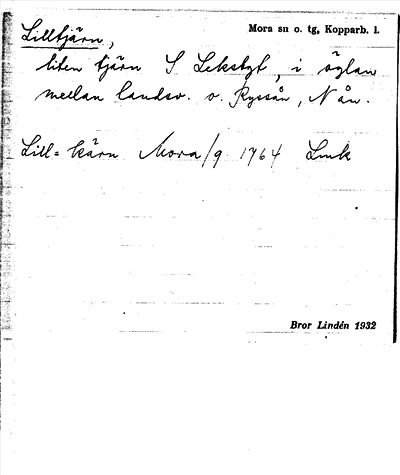 Lilltjärn,
Mora sn o. tg, Kopparb. l.
liten tjärn S Leksbgt, i öglan
mellan landsv. o. Ryssån, N ån.
Lill= kärn Mora/9 1764 Lmk
Bror Lindén 1932